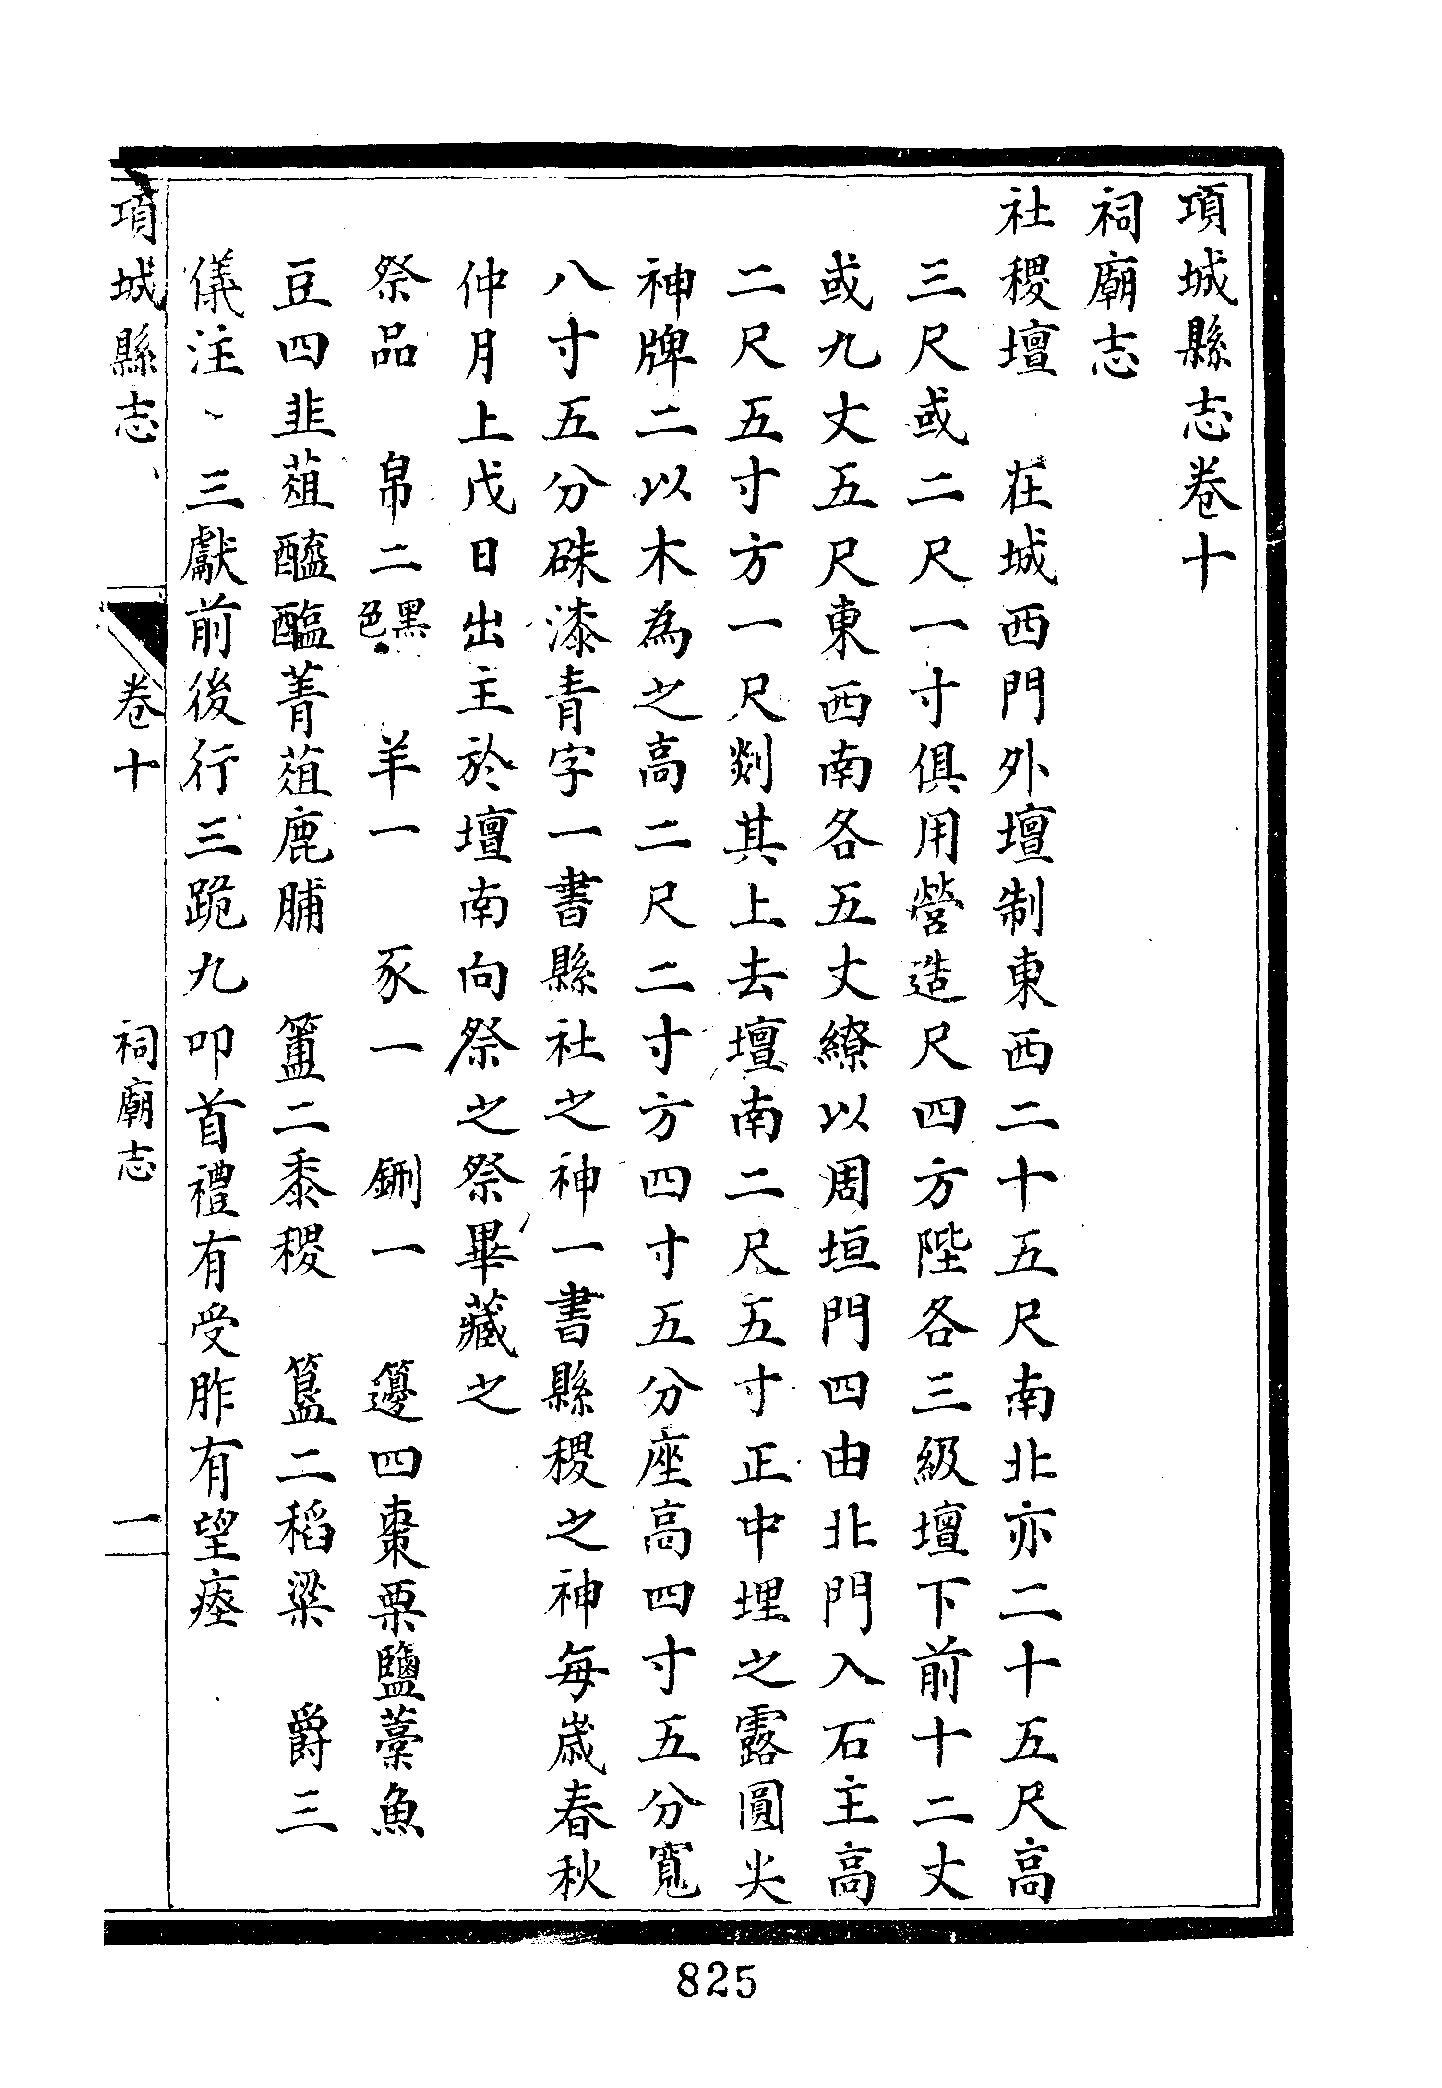 項城縣志卷十
祠廟志
社稷壇 在城西門外壇制東西二十五尺南北亦二十五尺高
三尺或二尺一寸俱用營造尺四方陛各三級壇下前十二丈
或九丈五尺東西南各五丈繚以周垣門四由北門入石主高
二尺五寸方一尺剡其上去壇南二尺五寸正中埋之露圓尖
神牌二以木為之高二尺二寸方四寸五分座高四寸五分寬
八寸五分硃漆青字一書縣社之神一書縣稷之神每歲春秋
仲月上戊日出主於壇南向祭之祭畢藏之
祭品 帛二黑色 羊一 豕一 鉶一 籩四棗栗鹽藁魚
豆四韭葅醯醢菁葅鹿脯 簠二黍稷 簋二稻粱 爵三
儀注 三獻前後行三跪九叩首禮有受胙有望瘞
項城縣志 卷十 祠廟志 一
825